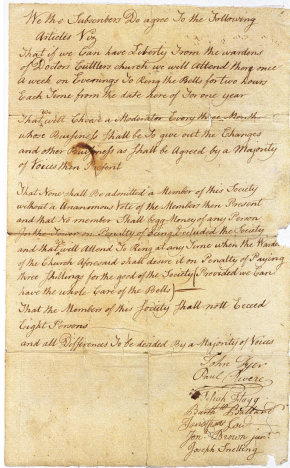 We the Subscribers Do agree To the Following
Articles Viz
That if we Can have Liberty From the wardens
of Doctors Cuttlers church we will Attend there once
A week on Evenings To Ring the Bells for two hours
Each Time from the date here of For one year
That we will Choose a Moderator Every three Month
whose Business Shall be To give out the Changes
and other Business as Shall be Agreed by a Majority
of Voices then Present
That None Shall Be admitted a Member of this Society
without a Unanomous Vote of the Members then Present
and that No member Shall begg Money of any Person
In the Tower on Penalty of being Excluded the Society
and that we will Attend To Ring at any Time when the Wardens
of the Church Aforesaid shall desire it on Penalty of Paying
three Shillings for the good of the Society Provided we Can
have the whole Care of the Bells
That the Members of this Society Shall nott Exceed
Eight Persons
and all Differences To be decided By a Majority of Voices
John Dyer
Paul Revere
Josiah Flagg
Barth Ballard
Jonathan Law
Jon Brown junr
Joseph Snelling